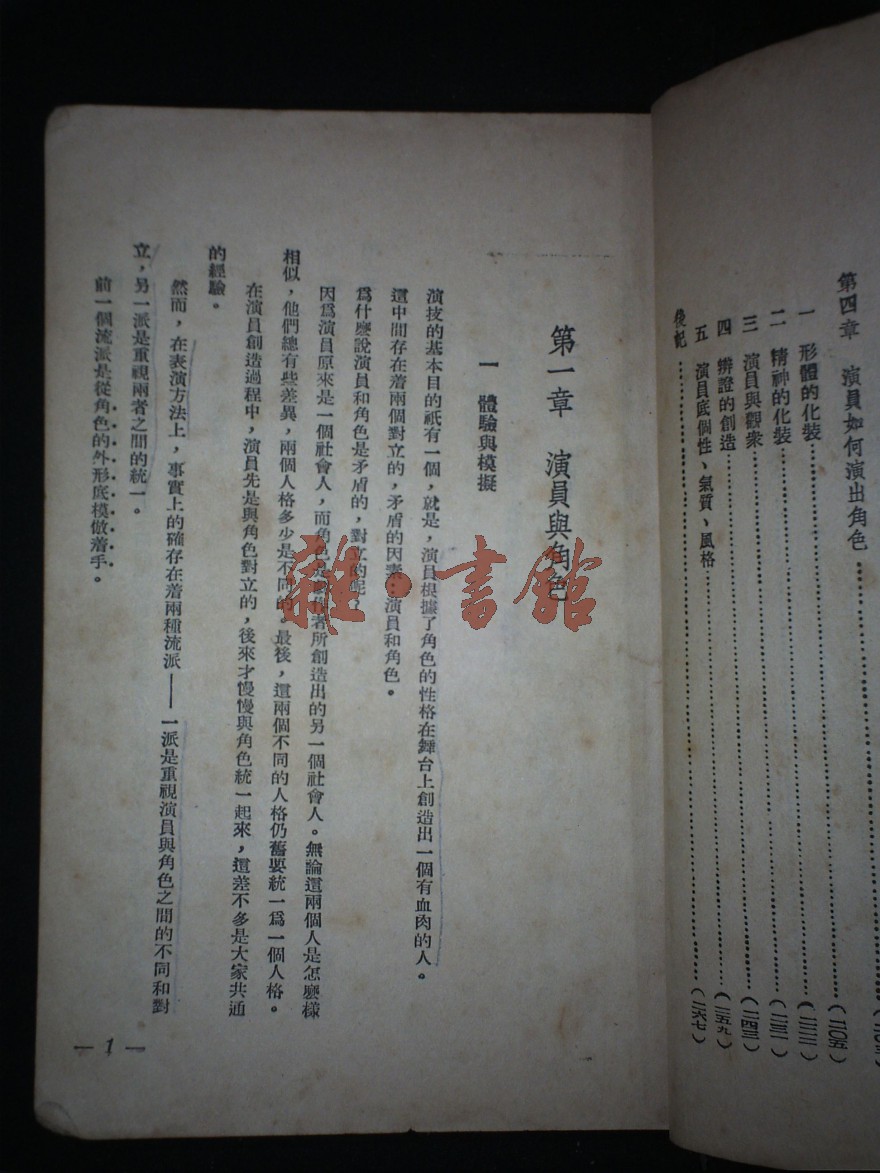 第四章　演員如何演出角色
一　形體的化裝……（二二二）
二　精神的化裝……（二三一）
三　演員與觀衆……（二四三）
四　辨證的創造……（二五九）
五　演員底個性、氣質、風格
後記……（二六七）
第一章　演員與角色
一　體驗與模擬
演技的基本目的祇有一個，就是，演員根據了角色的性格在舞台上創造出一個有血肉的人。
這中間存在着兩個對立的，矛盾的因素：演員和角色。
爲什麼說演員和角色是矛盾的，對立的呢？
因爲演員原來是一個社會人，而角色是劇作者所創造出的另一個社會人。無論這兩個人是怎麼樣
相似，他們總有些差異，兩個人格多少是不同的。最後，這兩個不同的人格仍舊要統一爲一個人格。
在演員創造過程中，演員先是與角色對立的，後來才慢慢與角色統一起來，這差不多是大家共通
的經驗。
然而，在表演方法上，事實上的確存在着兩種流派——一派是重視演員與角色之間的不同和對
立，另一派是重視兩者之間的統一。
前一個流派是從角色的外形底模倣着手。
—1—
雜·書館